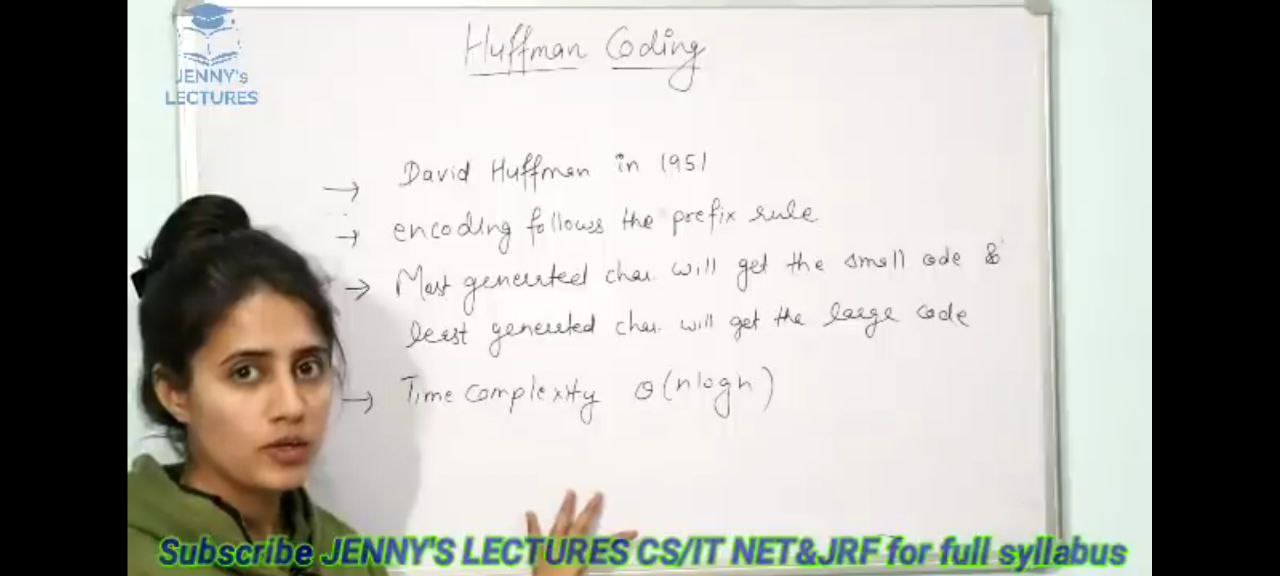 JENNY's
LECTURES
Huffman Coding
→ David Huffman in 1951
→ encoding follows the prefix rule
→ Most generated char. will get the small code &
least generated char. will get the large code
→ Time complexity θ(nlogn)
Subscribe JENNY'S LECTURES CS/IT NET&JRF for full syllabus